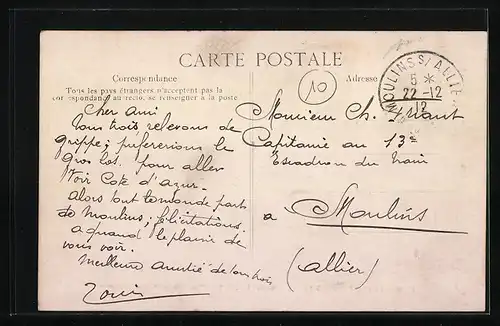 CARTE POSTALE
Correspondance
Tous les pays étrangers n'acceptent pas la
correspondance au recto, se renseigner à la poste
Adresse
10
MOULINS S/ ALLIER
5 *
22 - 12
12
Cher ami
Tous trois relevons de
grippe; préférerions le
gros lot. pour aller
voir Cote d'azur.
Alors tout le monde part
de Moulins; félicitations.
a quand le plaisir de
vous voir.
Meilleure amitié de tous trois
Louis
Monsieur Ch.
Capitaine au 13e
Escadron du train
a Moulins
(Allier)